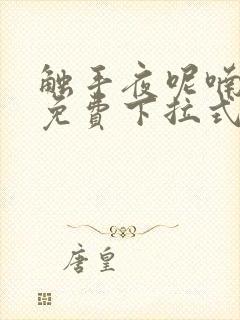 触手夜呢喃
免費下拉式
唐皇